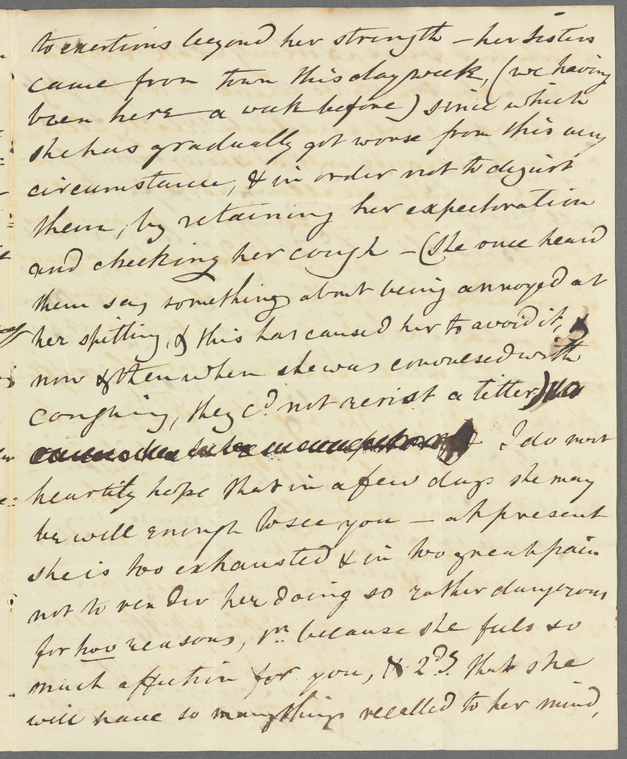 to exertions beyond her strength – her sisters
came from town this day week, (we having
been here a week before) since which
she has gradually got worse from this very
circumstance, & in order not to disgust
them, by retaining her expectoration
and checking her cough – (she once heard
them say something about being annoyed at
her spitting, & this has caused her to avoid it, &
now & then when she was convulsed with
coughing, they cd. not resist a titter)
I do most
heartily hope that in a few days she may
be well enough to see you – at present
she is too exhausted & in too great pain
not to render her doing so rather dangerous
for two reasons, 1st. because she feels so
much affection for you, & 2d. that she
will have so many things recalled to her mind,